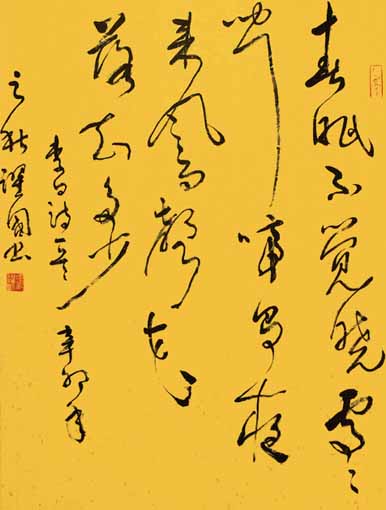 春眠不觉晓处々
闻啼鸟夜
来风雨声花
落知多少
李白诗一首 辛卯年
之秋 国书